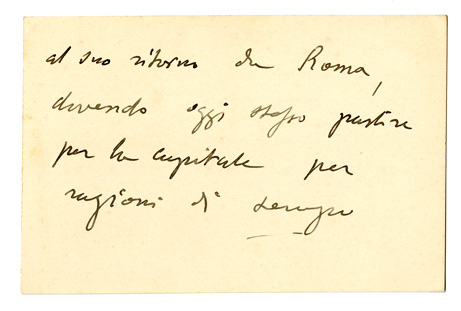 al suo ritorno da Roma,
dovendo oggi stesso partire
per la capitale per
ragioni di